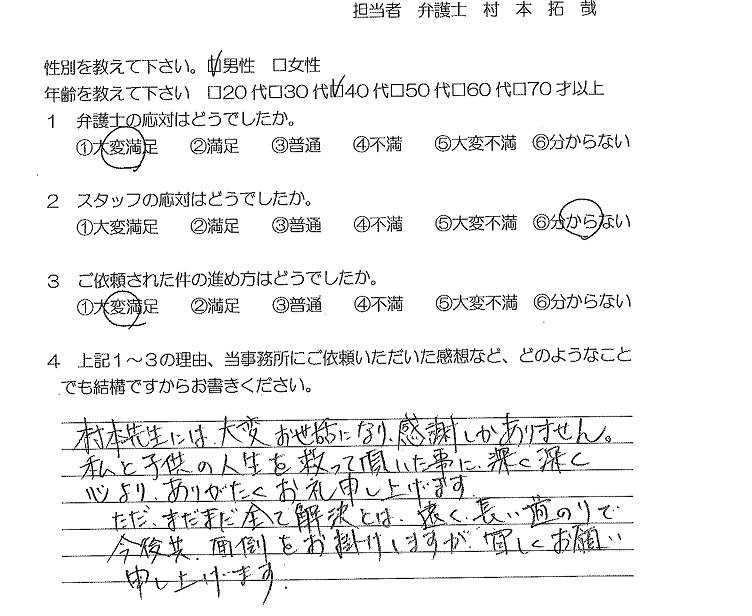 担当者 弁護士 村 本 拓 哉
性別を教えて下さい。☑男性 □女性
年齢を教えて下さい □20代□30代☑40代□50代□60代□70才以上
1 弁護士の応対はどうでしたか。
①大変満足 ②満足 ③普通 ④不満 ⑤大変不満 ⑥分からない
2 スタッフの応対はどうでしたか。
①大変満足 ②満足 ③普通 ④不満 ⑤大変不満 ⑥分からない
3 ご依頼された件の進め方はどうでしたか。
①大変満足 ②満足 ③普通 ④不満 ⑤大変不満 ⑥分からない
4 上記1～3の理由、当事務所にご依頼いただいた感想など、どのようなこと
でも結構ですからお書きください。
村本先生には、大変お世話になり、感謝しかありません。
私と子供の人生を救って頂いた事に、深く深く
心より、ありがたくお礼申し上げます。
ただ、まだまだ全て解決とは、遠く、長い道のりで
今後共、面倒をお掛けしますが、宜しくお願い
申し上げます。